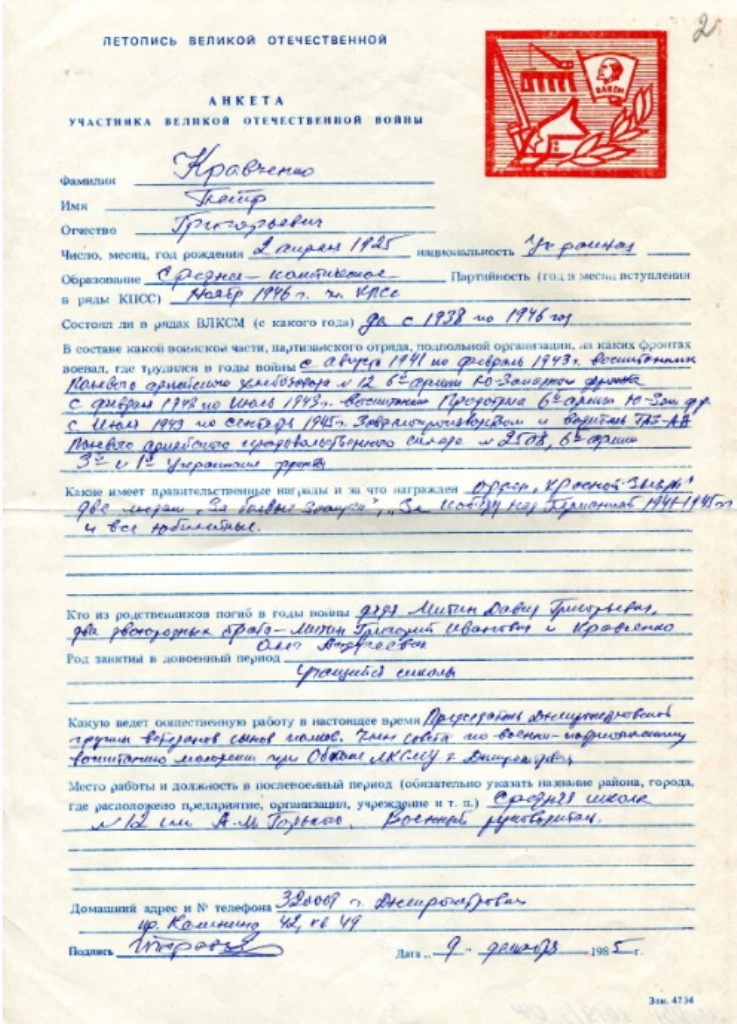 2
ЛЕТОПИСЬ ВЕЛИКОЙ ОТЕЧЕСТВЕННОЙ
ВЛКСМ
АНКЕТА
УЧАСТНИКА ВЕЛИКОЙ ОТЕЧЕСТВЕННОЙ ВОЙНЫ
Фамилия Кравченко
Имя Петр
Отчество Григорьевич
Число, месяц, год рождения 2 апреля 1925 национальность Украинец
Образование Средне-
Партийность (год и месяц вступления
в ряды КПСС) Ноябр 1946 г. чл. КПСС
Состоял ли в рядах ВЛКСМ (с какого года) да с 1938 по 1946 год
В составе какой воинской части, партизанского отряда, подпольной организации, на каких фронтах
воевал, где трудился в годы войны с август 1941 по февраль 1943 г. воспитанник
Полевого армейского хлебозавода № 12 6ой армии Ю-Западного фронта
с февраля 1943 по Июль 1943 г. воспитанник 6ой армии Ю-Зап фр.
с Июля 1943 по сентябрь 1945 г. Завделопроизводством и водитель ГАЗ-АА
Полевого армейского продовольственного склада № 2508, 6ой армии
3й и 1й Украинский фронты
Какие имеет правительственные награды и за что награжден орден „Красной Звезды"
две медали „За боевые заслуги", „За победу над Германией 1941-1945 гг
и все юбилейные.
Кто из родственников погиб в годы войны дядя Митин Давид Григорьевич,
два двоюродных брата - Митин Григорий Иванович и Кравченко
Олег Андреевич
Род занятий в довоенный период
Учащийся школы
Какую ведет общественную работу в настоящее время Председатель Днепропетровской
группы ветеранов сынов полков. Член совета по военно-патриотическому
воспитанию молодежи при Обкоме ЛКСМУ г. Днепропетровск
Место работы и должность в послевоенный период (обязательно указать название района, города,
где расположено предприятие, организация, учреждение и т. п.) Средняя школа
№ 12 им А.М. Горького. Военный руководитель.
Домашний адрес и № телефона 320009 г. Днепропетровск
пр. Калинина 42, кв 49
Подпись
Дата „ 9 " декабря 1985 г.
Зак. 4734